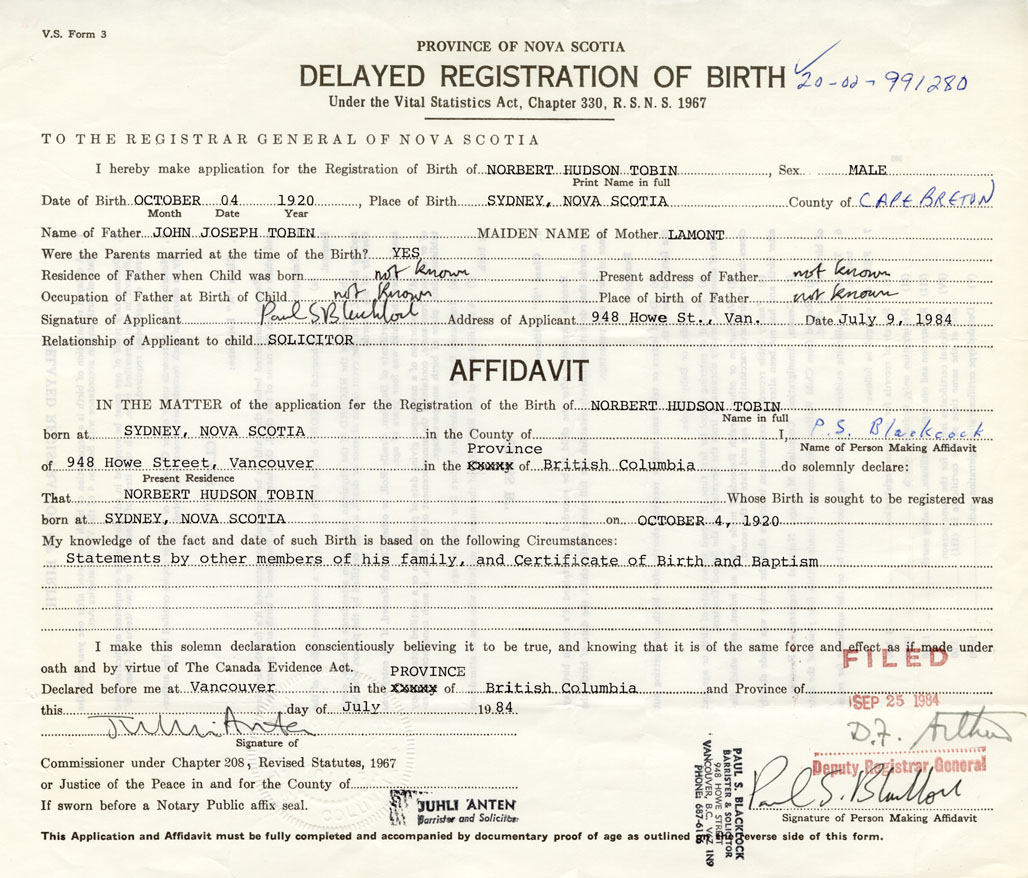 V.S. Form 3
PROVINCE OF NOVA SCOTIA
DELAYED REGISTRATION OF BIRTH
20-02-991280
Under the Vital Statistics Act, Chapter 330, R.S.N.S. 1967
TO THE REGISTRAR GENERAL OF NOVA SCOTIA
I hereby make application for the Registration of Birth of NORBERT HUDSON TOBIN, Sex MALE
Print Name in full
Date of Birth OCTOBER 04 1920, Place of Birth SYDNEY, NOVA SCOTIA County of CAPE BRETON
Month Date Year
Name of Father JOHN JOSEPH TOBIN MAIDEN NAME of Mother LAMONT
Were the Parents married at the time of the Birth? YES
Residence of Father when Child was born not known Present address of Father not known
Occupation of Father at Birth of Child not known Place of birth of Father not known
Signature of Applicant Address of Applicant 948 Howe St., Van. Date July 9, 1984
Relationship of Applicant to child SOLICITOR
AFFIDAVIT
IN THE MATTER of the application for the Registration of the Birth of NORBERT HUDSON TOBIN
Name in full
born at SYDNEY, NOVA SCOTIA in the County of I, P.S. Blackcock
Province Name of Person Making Affidavit
of 948 Howe Street, Vancouver in the of British Columbia do solemnly declare:
Present Residence
That NORBERT HUDSON TOBIN Whose Birth is sought to be registered was
born at SYDNEY, NOVA SCOTIA on OCTOBER 4, 1920
My knowledge of the fact and date of such Birth is based on the following Circumstances:
Statements by other members of his family, and Certificate of Birth and Baptism
I make this solemn declaration conscientiously believing it to be true, and knowing that it is of the same force and effect as if made under
oath and by virtue of The Canada Evidence Act.
FILED
PROVINCE
Declared before me at Vancouver in the of British Columbia and Province of
SEP 25 1984
this day of July 1984
D.F. Arthur
Signature of
Commissioner under Chapter 208, Revised Statutes, 1967
Deputy Registrar General
or Justice of the Peace in and for the County of
If sworn before a Notary Public affix seal.
JUHLI ANTEN
Barrister and Solicitor
PAUL S. BLACKLOCK
BARRISTER & SOLICITOR
948 HOWE STREET
VANCOUVER, B.C. V6Z 1N9
Signature of Person Making Affidavit
This Application and Affidavit must be fully completed and accompanied by documentary proof of age as outlined on the reverse side of this form.